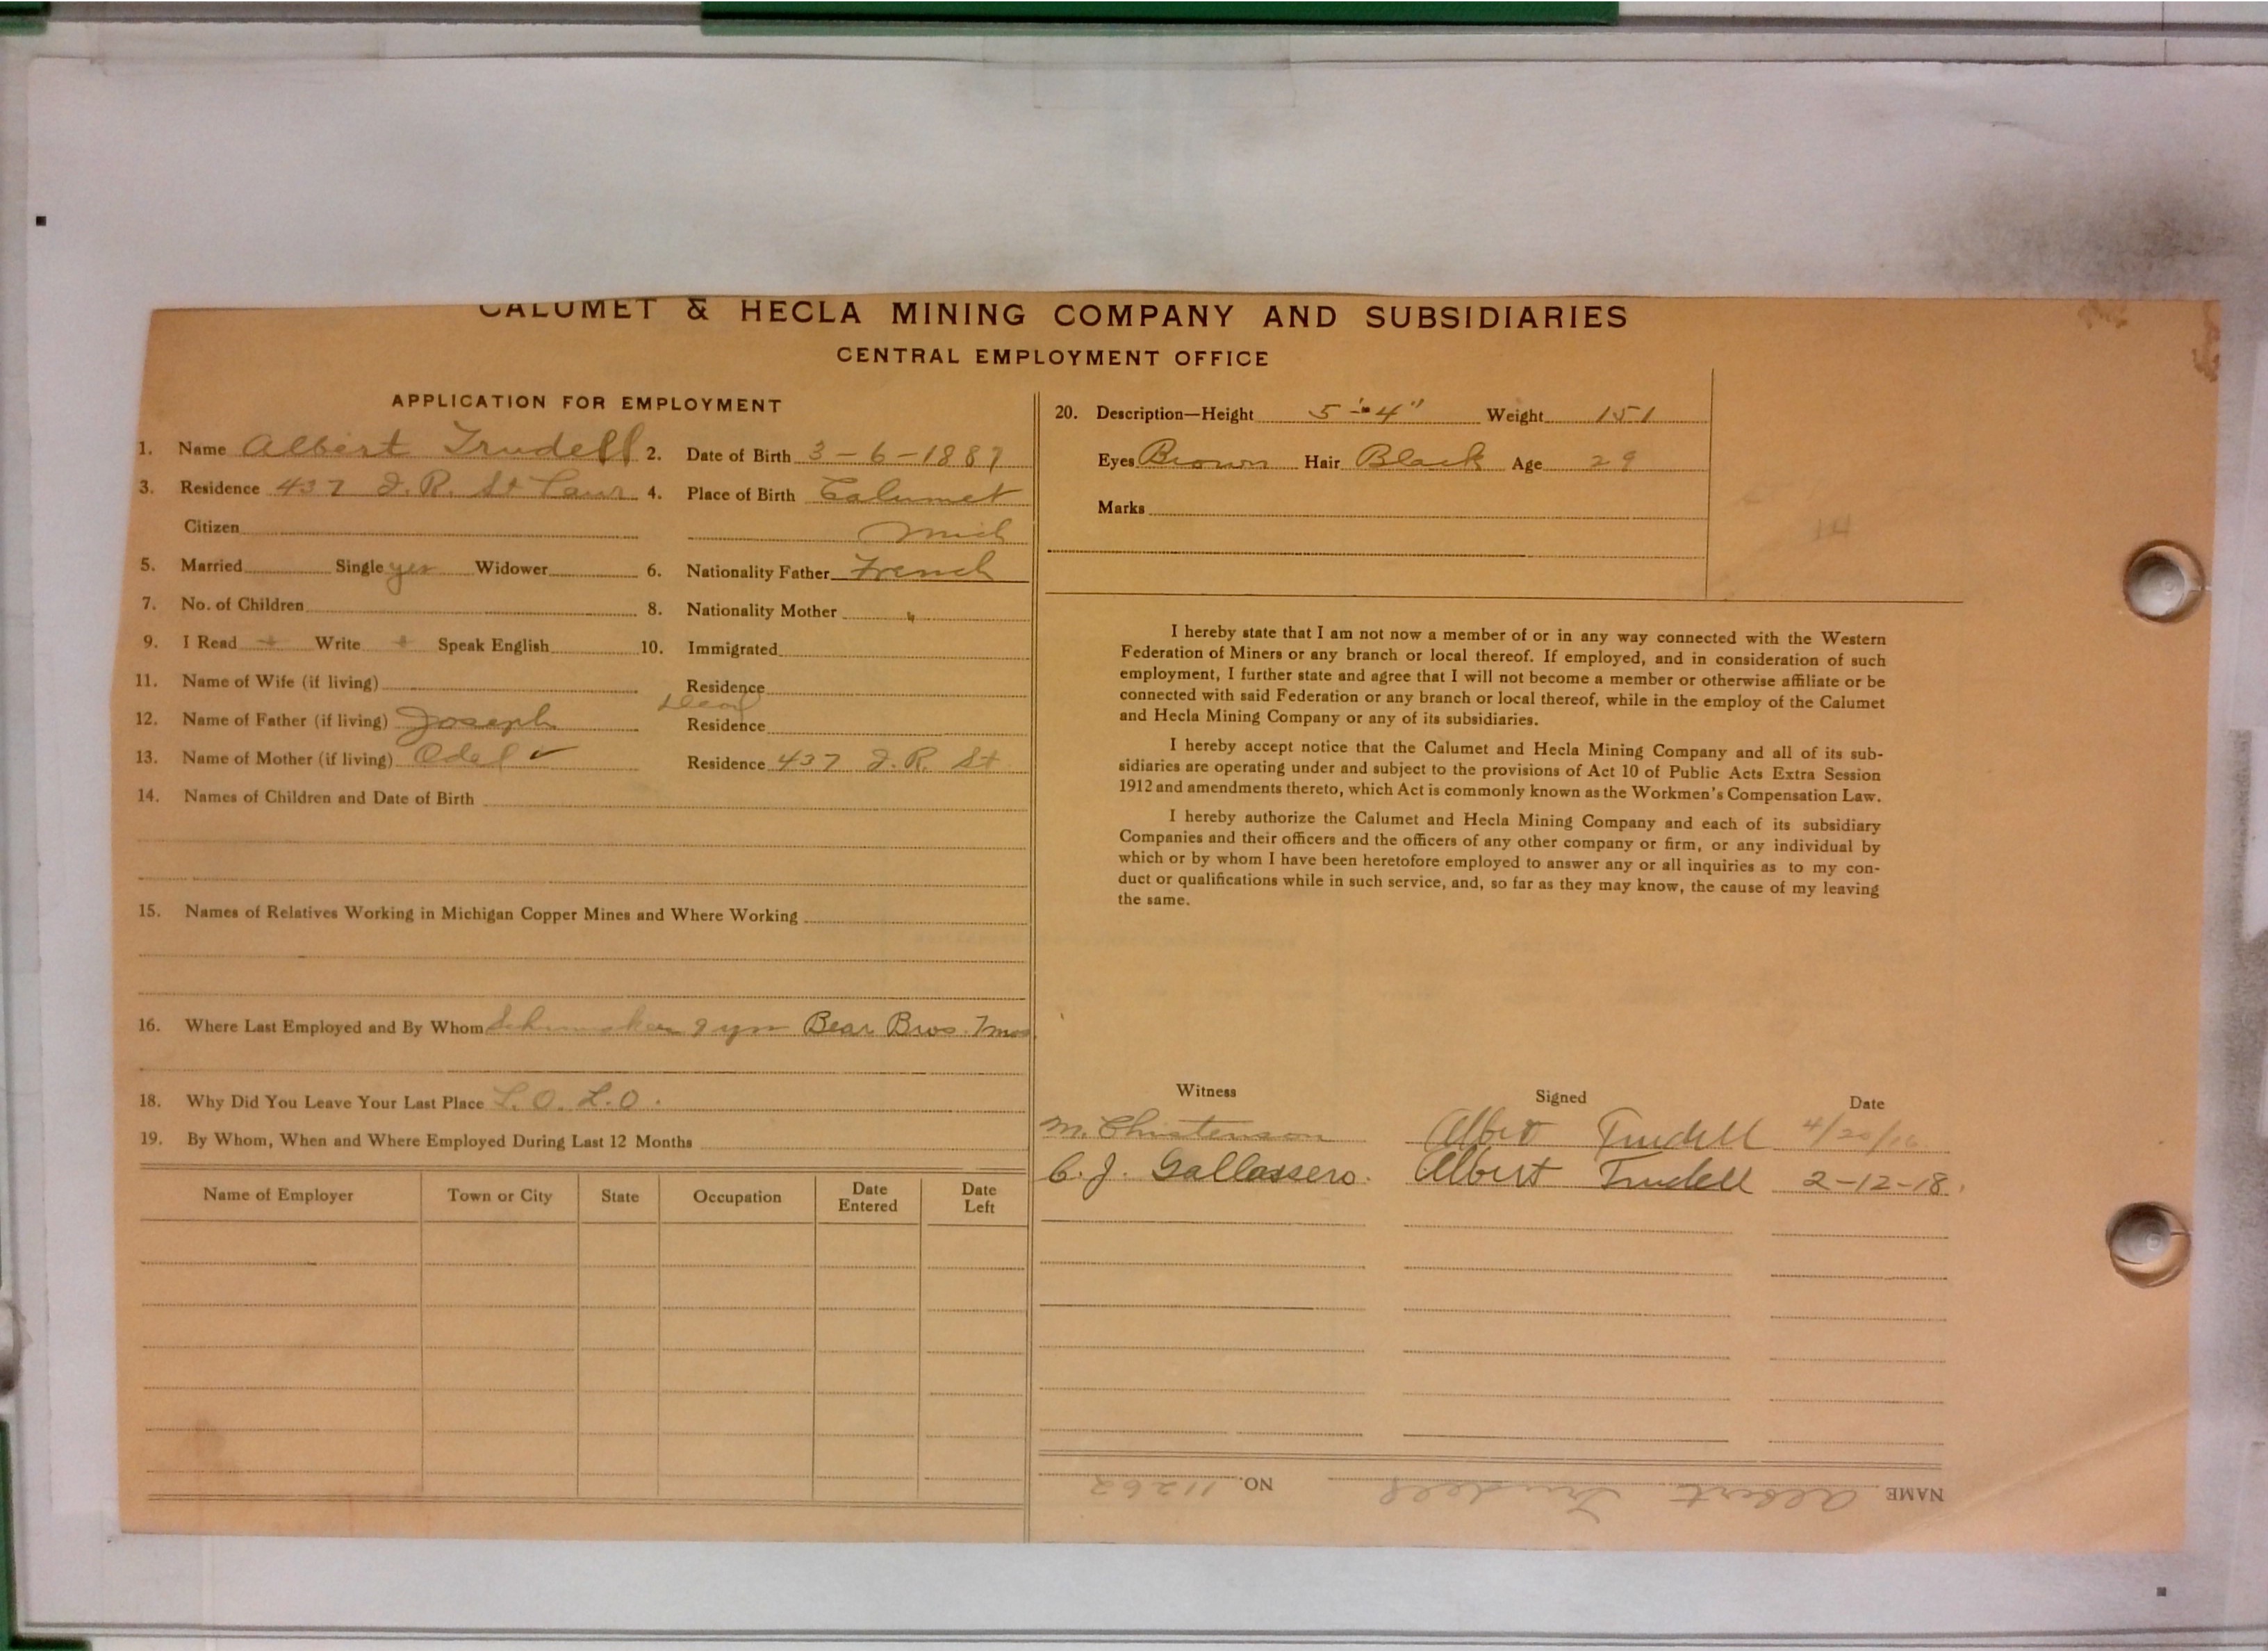 CALUMET & HECLA MINING COMPANY AND SUBSIDIARIES
CENTRAL EMPLOYMENT OFFICE
APPLICATION FOR EMPLOYMENT
1. Name Albert Trudell 2. Date of Birth 3-6-1887
3. Residence 437 J.R. St Laur 4. Place of Birth Calumet
Citizen Mich
5. Married Single yes Widower 6. Nationality Father French
7. No. of Children 8. Nationality Mother "
9. I Read + Write + Speak English 10. Immigrated
11. Name of Wife (if living) Residence
12. Name of Father (if living) Joseph Dead Residence
13. Name of Mother (if living) Odel ✓ Residence 437 J.R. St
14. Names of Children and Date of Birth
15. Names of Relatives Working in Michigan Copper Mines and Where Working
16. Where Last Employed and By Whom 9 yrs Bear Bros. 7 mos
18. Why Did You Leave Your Last Place L.O. L.O.
19. By Whom, When and Where Employed During Last 12 Months
Name of Employer Town or City State Occupation Date Entered Date Left
20. Description—Height 5'-4" Weight 151
Eyes Brown Hair Black Age 29
Marks
I hereby state that I am not now a member of or in any way connected with the Western
Federation of Miners or any branch or local thereof. If employed, and in consideration of such
employment, I further state and agree that I will not become a member or otherwise affiliate or be
connected with said Federation or any branch or local thereof, while in the employ of the Calumet
and Hecla Mining Company or any of its subsidiaries.
I hereby accept notice that the Calumet and Hecla Mining Company and all of its sub-
sidiaries are operating under and subject to the provisions of Act 10 of Public Acts Extra Session
1912 and amendments thereto, which Act is commonly known as the Workmen's Compensation Law.
I hereby authorize the Calumet and Hecla Mining Company and each of its subsidiary
Companies and their officers and the officers of any other company or firm, or any individual by
which or by whom I have been heretofore employed to answer any or all inquiries as to my con-
duct or qualifications while in such service, and, so far as they may know, the cause of my leaving
the same.
Witness Signed Date
M. Christenson Albert Trudell 4/20/16
C. J. Gallassero. Albert Trudell 2-12-18.
NAME Albert Trudell NO. 11262